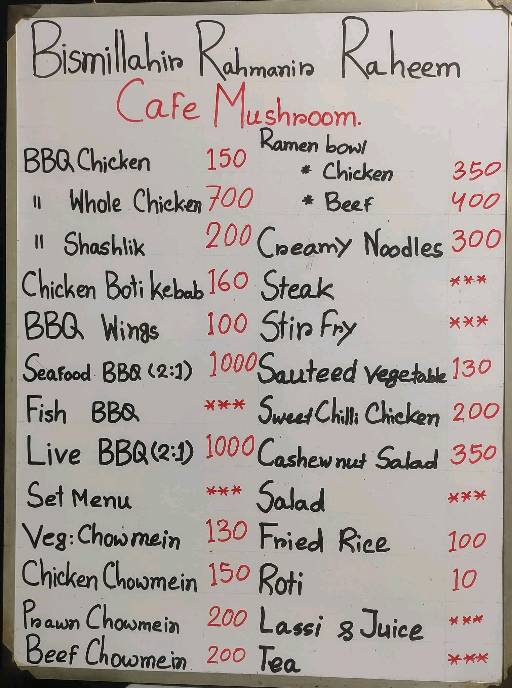 Bismillahir Rahmanir Raheem
Cafe Mushroom.
BBQ Chicken 150
" Whole Chicken 700
" Shashlik 200
Chicken Boti kebab 160
BBQ Wings 100
Seafood BBQ (2:1) 1000
Fish BBQ ***
Live BBQ (2:1) 1000
Set Menu ***
Veg: Chowmein 130
Chicken Chowmein 150
Prawn Chowmein 200
Beef Chowmein 200
Ramen bowl
* Chicken 350
* Beef 400
Creamy Noodles 300
Steak ***
Stir Fry ***
Sauteed Vegetable 130
Sweet Chilli Chicken 200
Cashewnut Salad 350
Salad ***
Fried Rice 100
Roti 10
Lassi & Juice ***
Tea ***